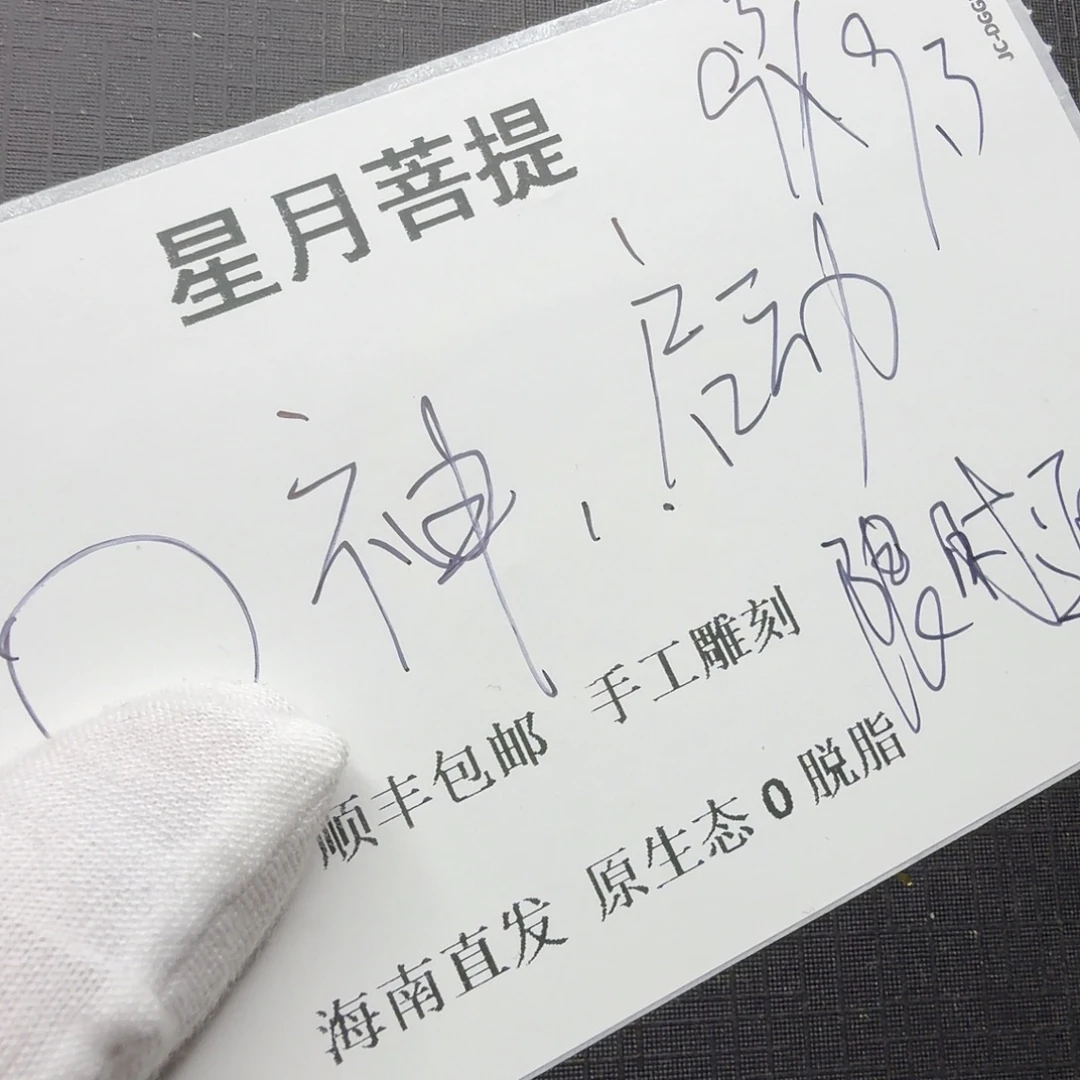 JC-DGGS
星月菩提
〇神,启动!
限时
顺丰包邮 手工雕刻
海南直发 原生态0脱脂